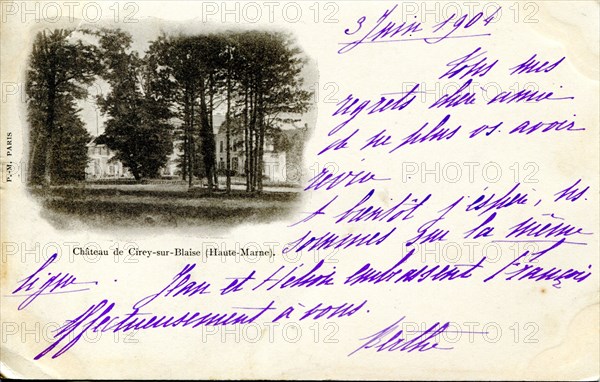 3 Juin 1904
Tous mes
regrets chère amie
de ne plus vs. avoir
revue
et bientôt j'espère, ns.
sommes sur la même
ligne. Jean et Hélène embrassent François
affectueusement à vous.
Berthe
Château de Cirey-sur-Blaise (Haute-Marne).
P.-M., PARIS
PHOTO12